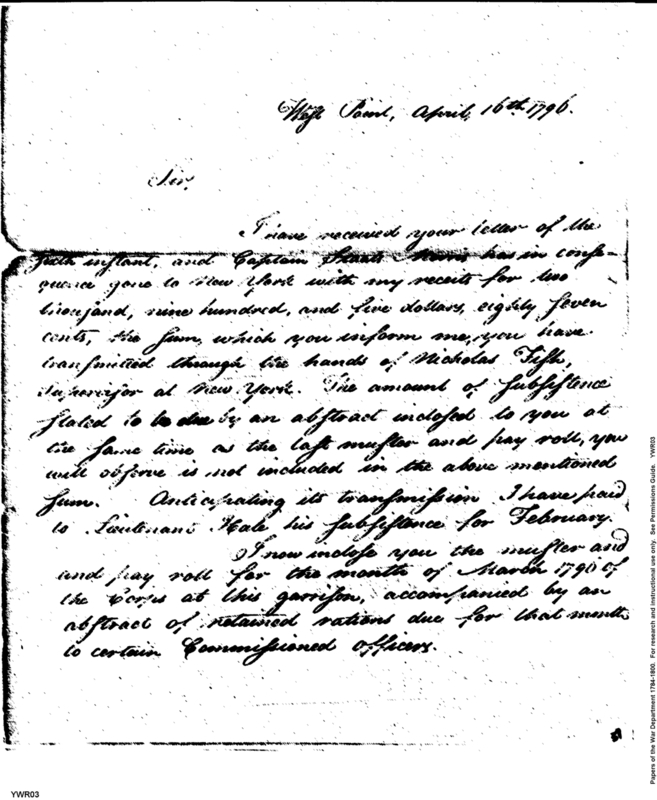 West Point, April, 16th. 1796.
Sir,
I have received your letter of the
instant, and Captain Staats Morris has in conse-
quence gone to New York with my receits for two
thousand, nine hundred, and five dollars, eighty seven
cents, the sum, which you inform me, you have
transmitted through the hands of Nicholas Fish,
Supervisor at New York. The amount of Subsistence
stated to be due by an abstract inclosed to you at
the same time as the last muster and pay roll, you
will observe is not included in the above mentioned
sum. Anticipating its transmission I have paid
to Lieutenant Hale his subsistence for February.
I now inclose you the muster and
and pay roll for the month of March 1796 of
the Corps at this garrison, accompanied by an
abstract of retained rations due for that month
to certain Commissioned officers.
YWR03
Papers of the War Department 1784-1800. For research and instructional use only. See Permissions Guide. YWR03